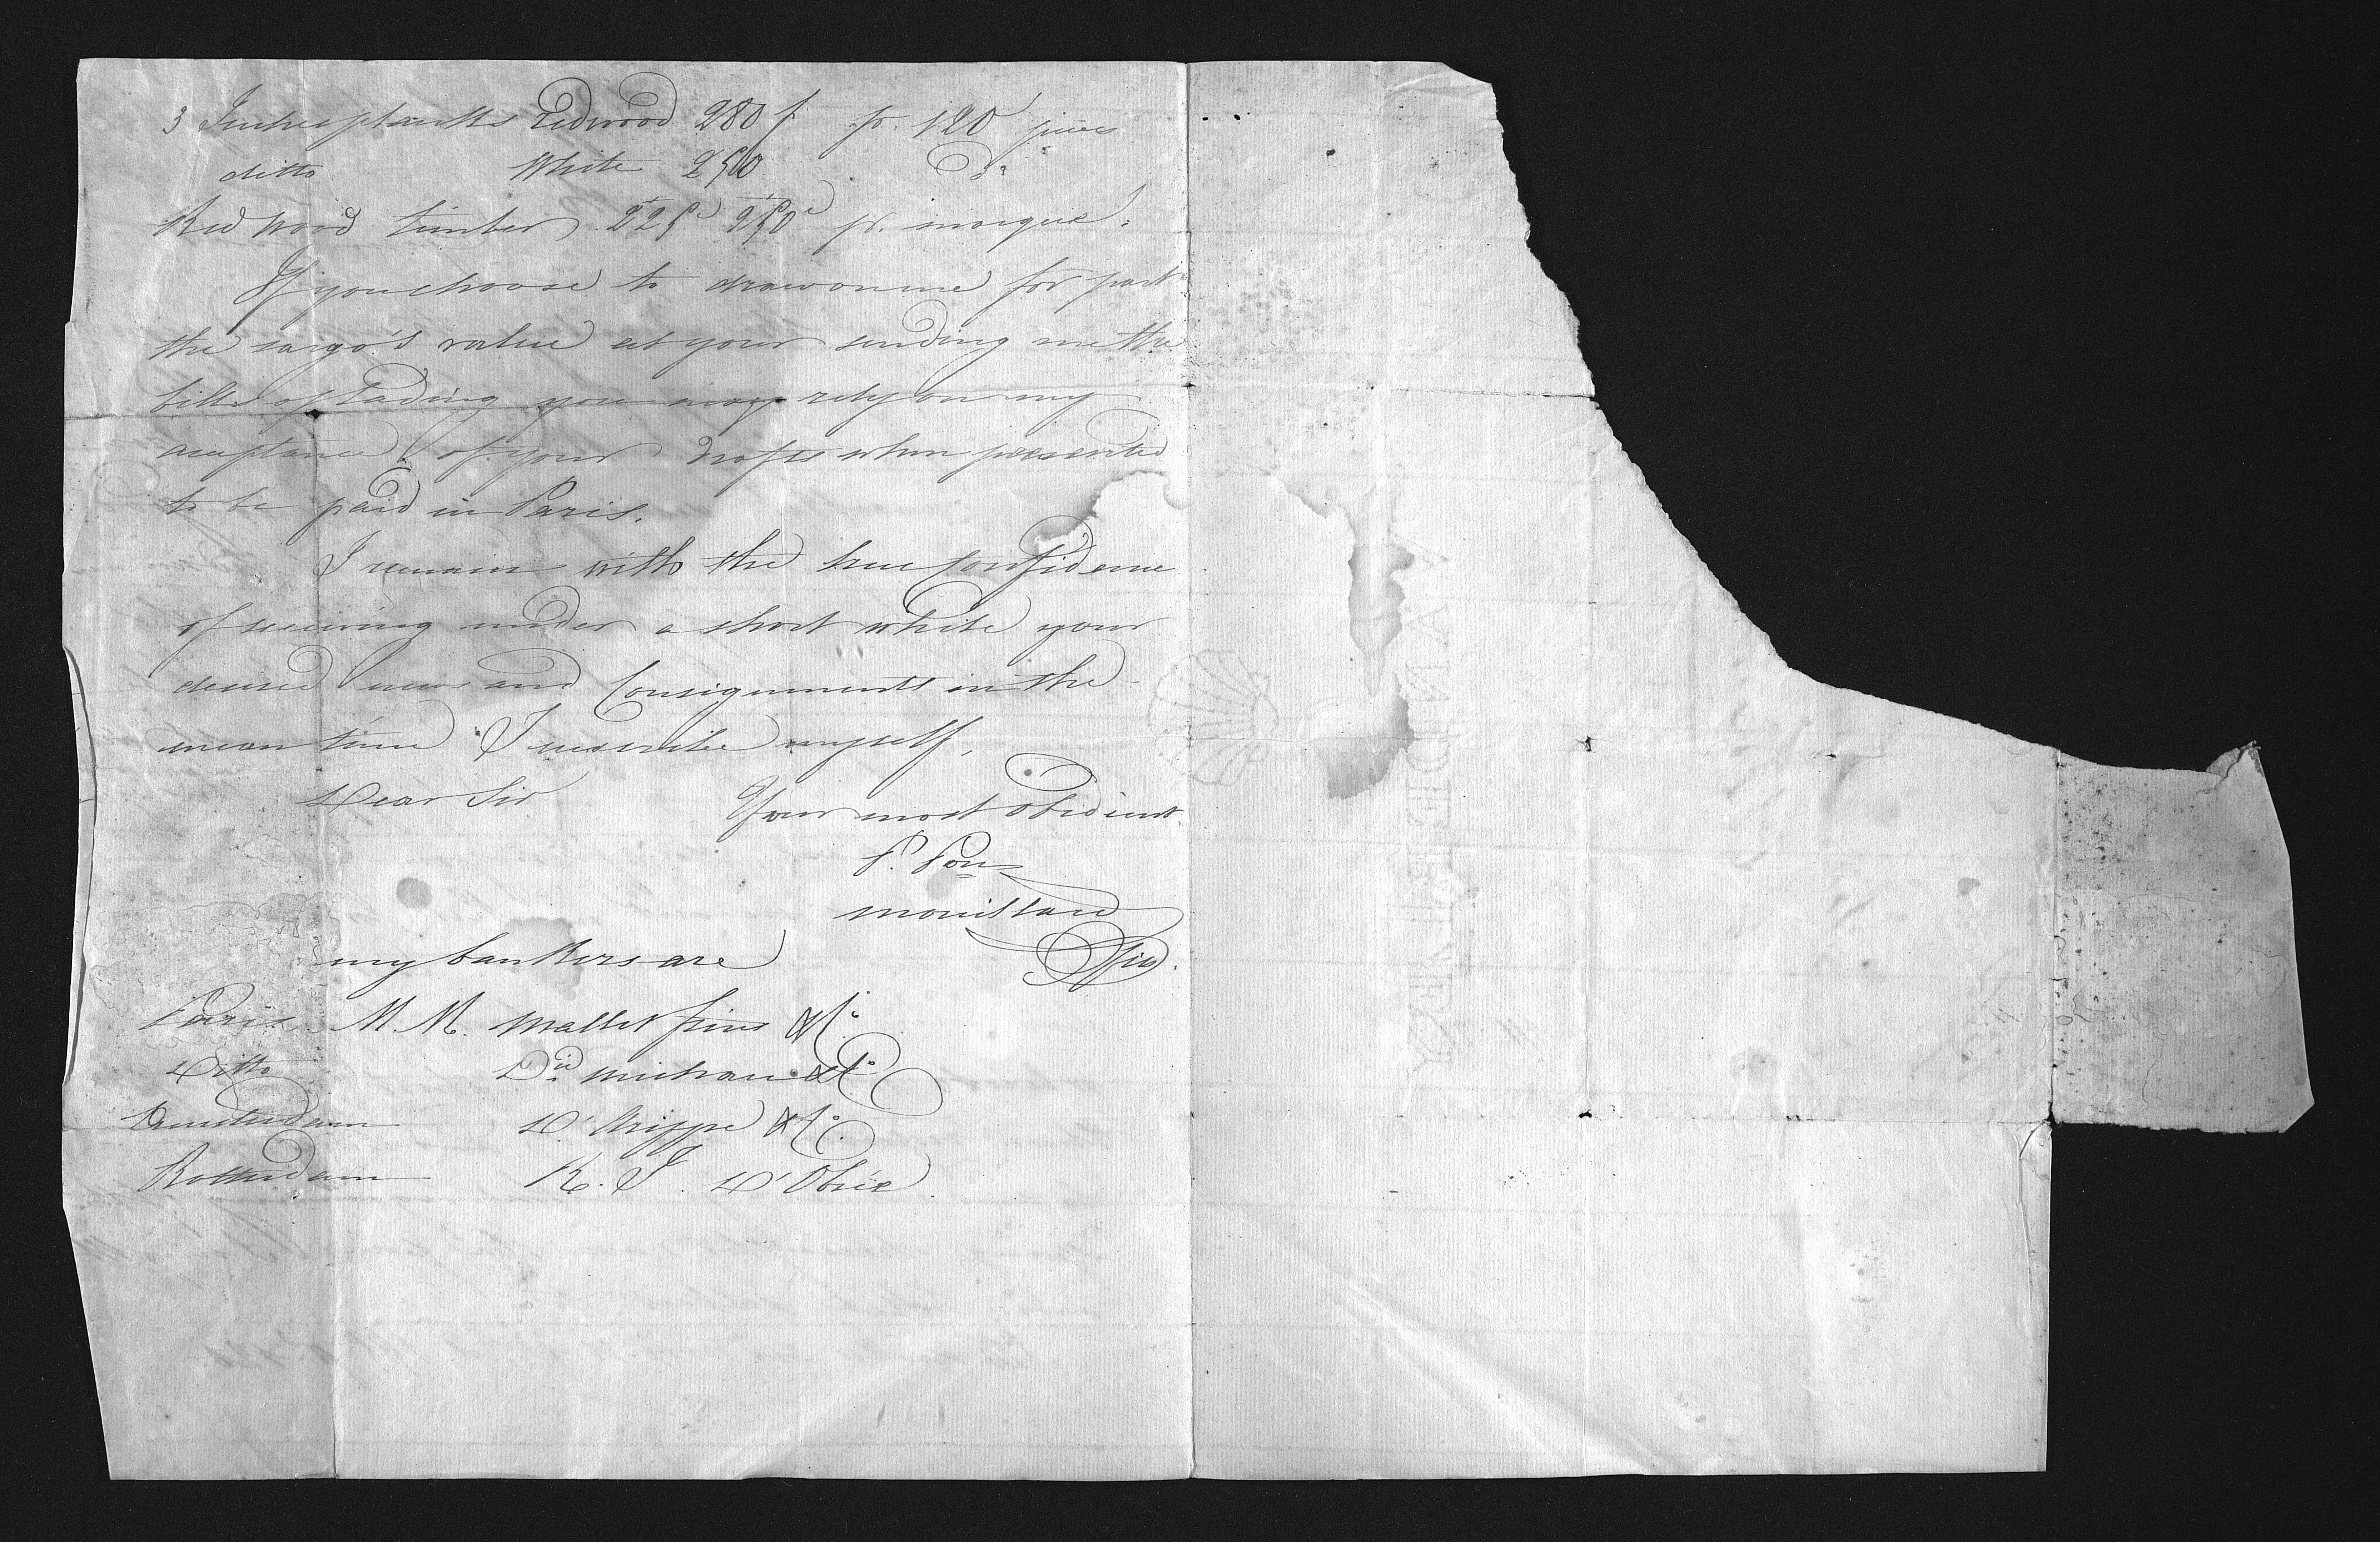 3 Inches planks Redwood 280 f pr. 120 pieces
ditto White 250 Do.
Red wood timber 225 250 pr. marque.
If you choose to draw on me for part
the cargo's value at your sending me the
bills of Lading you may rely on my
acceptance of your drafts when presented
to be paid in Paris.
I remain with the true Confidence
of receiving under a short while your
desired news and Consignments in the
mean time I subscribe myself,
Dear Sir Your most obedient
P. Pon
my bankers are
Paris M. M. Mallet frères & Co.
Ditto Dd. Michau & Co.
Amsterdam & Co.
Rotterdam R. J.